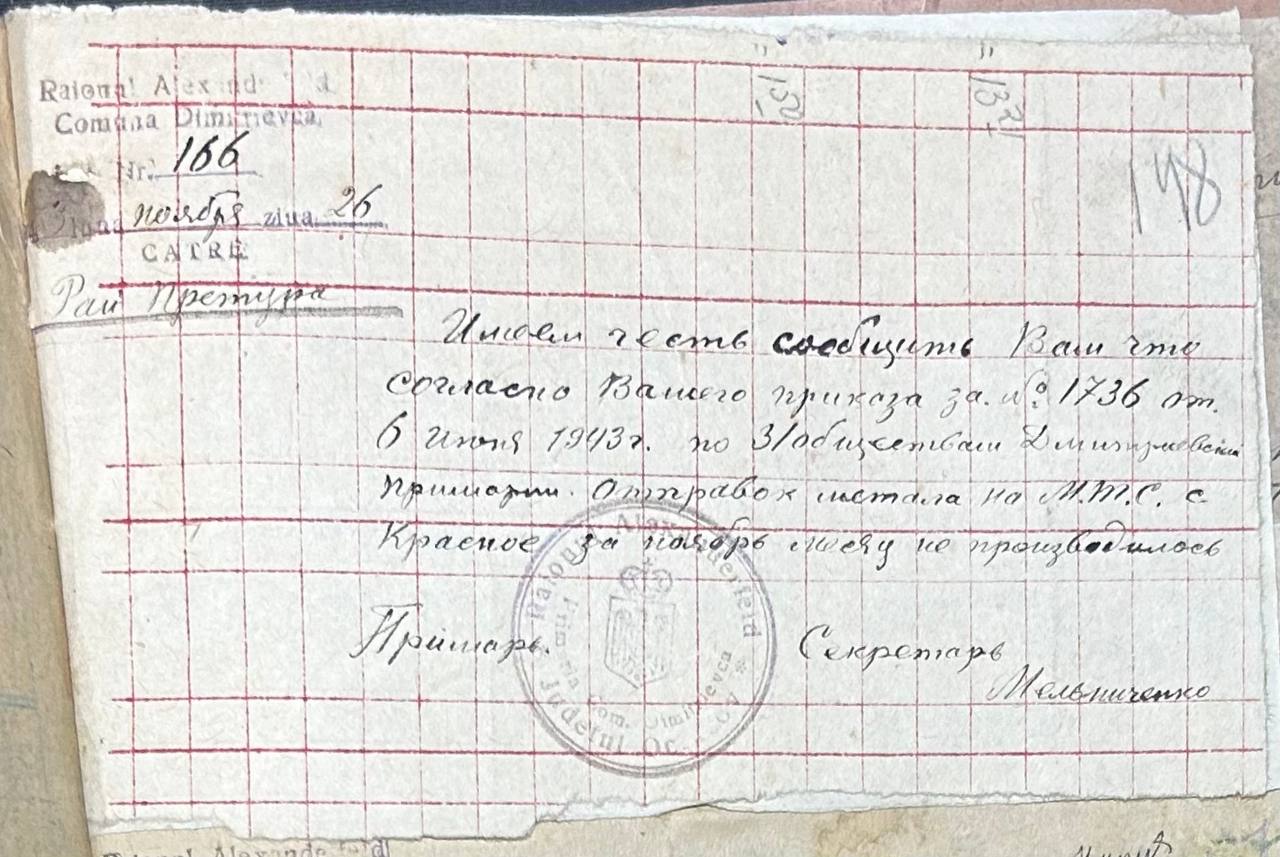 Raionul Alexanderfeld
Comuna Dimitrievca
Nr. 166
Luna ноября ziua 26
CATRE
Рай Претура
" 152
" 1321
148
Имеем честь сообщить Вам что
согласно Вашего приказа за. № 1736 от.
6 июня 1943г. по 3/обществам Дмитриевской
Примарии. Отправок метала на М.Т.С. с
Красное за ноябрь месяц не производилось
Примарь.
Секретарь
Мельниченко
Raionul Alexanderfeld * Judetul Oc
Primaria Com. Dimitrievca
Raionul Alexanderfeld